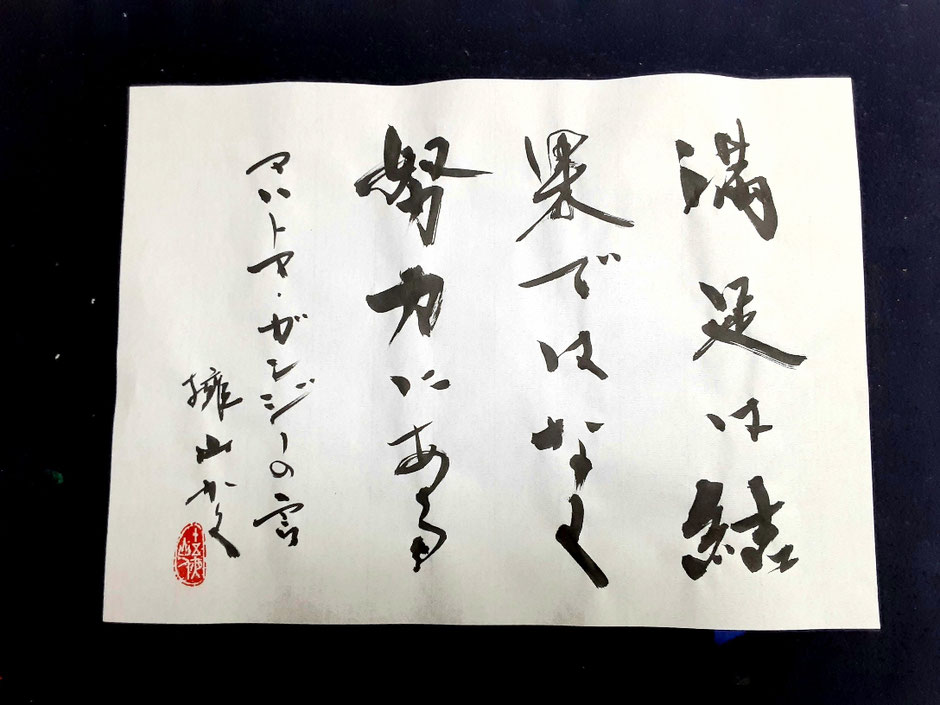 満足は結
果ではなく
努力にある
マハトマ・ガンジーの言
擁山かく